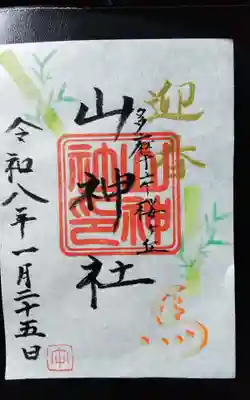 迎春
馬
多麻十六年桜ヶ丘
山神社
山神社印
令和八年一月二十五日